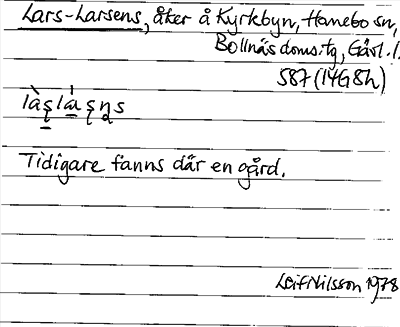 Lars-Larsens, åker å Kyrkbyn, Hanebo sn,
Bollnäs doms.tg, Gävl. l.
587 (14G8h)
làs̨lás̨ņs
Tidigare fanns där en gård.
Leif Nilsson 1978